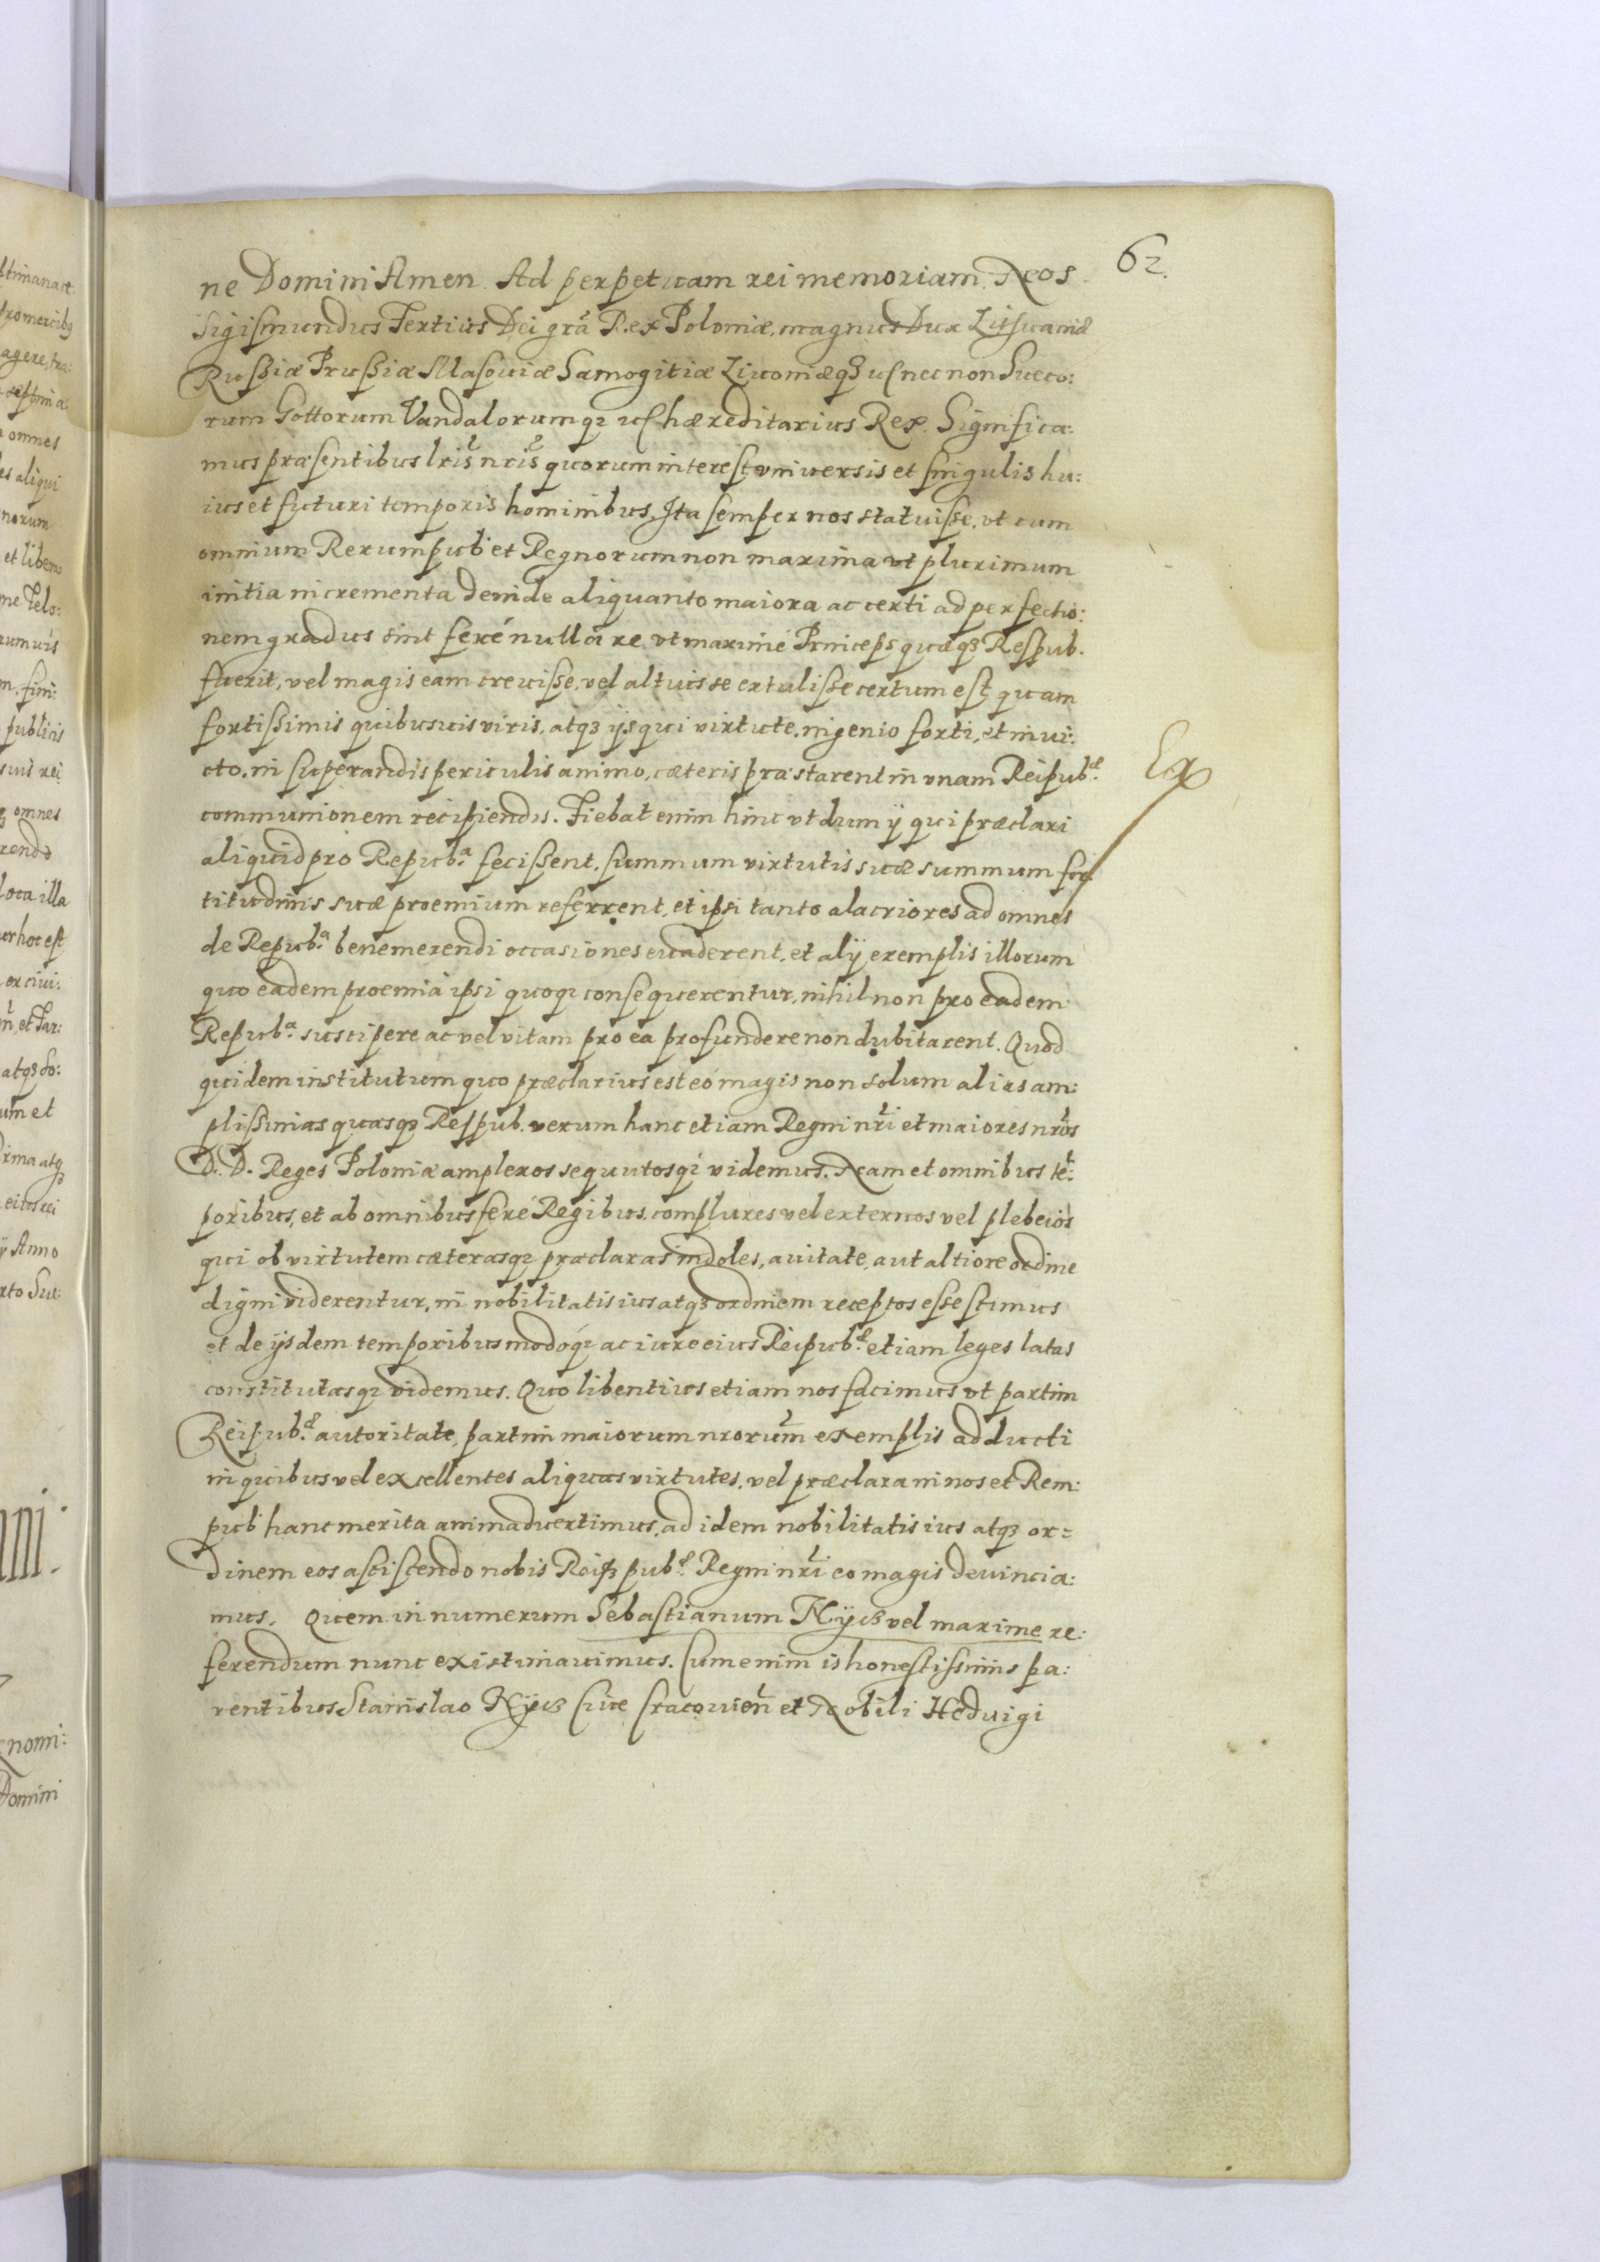 62.
ne Domini Amen. Ad perpetuam rei memoriam. Nos
Sigismundus Tertius Dei grã Rex Poloniæ, magnus Dux Lithuaniæ
Russiæ Prussiæ Masouiæ Samogitiæ Liuoniæq3 nec non Sueco:
rum Gottorum Vandalorumq3 hæreditarius Rex. Significa:
mus præsentibus lris nris quorum interest vniuersis et singulis hu:
ius et futuri temporis hominibus, Ita semper nos statuisse, vt cum
omnium Rerumpub et Regnorum non maxima vt plurimum
initia incrementa deinde aliquanto maiora ac certi ad perfectio:
nem gradus sint feré nullâ re vt maximé Princeps quæq3 Respub.
fuerit, vel magis eam creuisse, vel altius se extulisse certum est, quam
fortissimis quibusuis viris, atq3 ijs qui virtute, ingenio forti, et inui:
cto, in superandis periculis animo, cæteris præstarent in vnam Reipubæ.
communionem recipiendis. Fiebat enim hinc vt dum ij qui præclari
aliquid pro Repub.a fecissent, summum virtutis suæ summum for
titudinis suæ proemium referrent, et ipsi tanto alacriores ad omnes
de Repub.a benemerendi occasiones euaderent, et alij exemplis illorum
quo eadem proemia ipsi quoq3 consequerentur, nihil non pro eadem
Repub.a suscipere ac vel vitam pro ea profundere non dubitarent. Quod
quidem institutum quo præclarius est eó magis non solum alias am:
plissimas quasq3 Respub. verum hanc etiam Regni nri et maiores nros
D. D. Reges Poloniæ amplexos sequutosq3 videmus. Nam et omnibus té:
poribus, et ab omnibus feré Regibus, complures vel externos vel plebeios
qui ob virtutem cæterasq3 præclaras indoles, auitate, aut altiore ordine
digni viderentur, in nobilitatis ius atq3 ordinem receptos esse scimus
et de ijsdem temporibus modóq3 ac iure eius Reipub.æ etiam leges latas
constitutasq3 videmus. Quo libentius etiam nos facimus vt partim
Reipub.æ autoritate, partim maiorum nrorum exemplis adducti
in quibus vel excellentes aliquas virtutes, vel præclara in nos et Rem:
pub hanc merita animaduertimus, ad idem nobilitatis ius atq3 or=
dinem eos asciscendo nobis Reiq3 pub.æ Regni nri eo magis deuincia:
mus. Quem in numerum Sebastianum vel maxime re:
ferendum nunc existimauimus. Cum enim is honestissimis pa:
rentibus Stanislao Ciue Cracouien et Nobili Heduigi